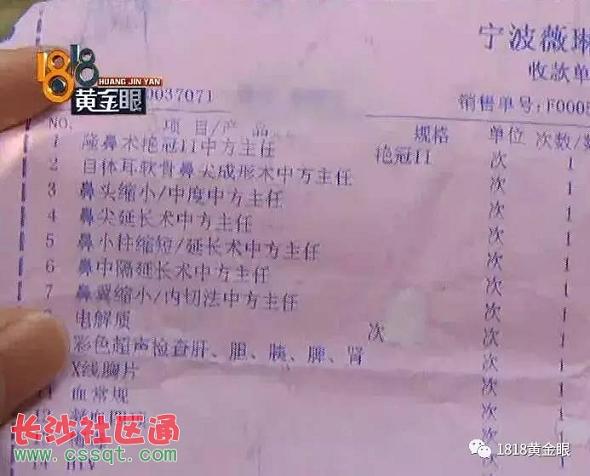 宁波薇琳
收款单
1818
HUANG JIN YAN
黄金眼
0037071
销售单号:F0005
NO. 项目/产品 规格 单位 次数/数
1 隆鼻术艳冠II中方主任 艳冠II 次 1
2 自体耳软骨鼻尖成形术中方主任 次 1
3 鼻头缩小/中度中方主任 次 1
4 鼻尖延长术中方主任 次 1
5 鼻小柱缩短/延长术中方主任 次 1
6 鼻中隔延长术中方主任 次 1
7 鼻翼缩小/内切法中方主任 次 1
电解质 次 次 1
彩色超声检查肝、胆、胰、脾、肾 次 1
X线胸片 次 1
11 血常规 次 1
12
长沙社区通
www.cssqt.com
14 HIV
1818黄金眼